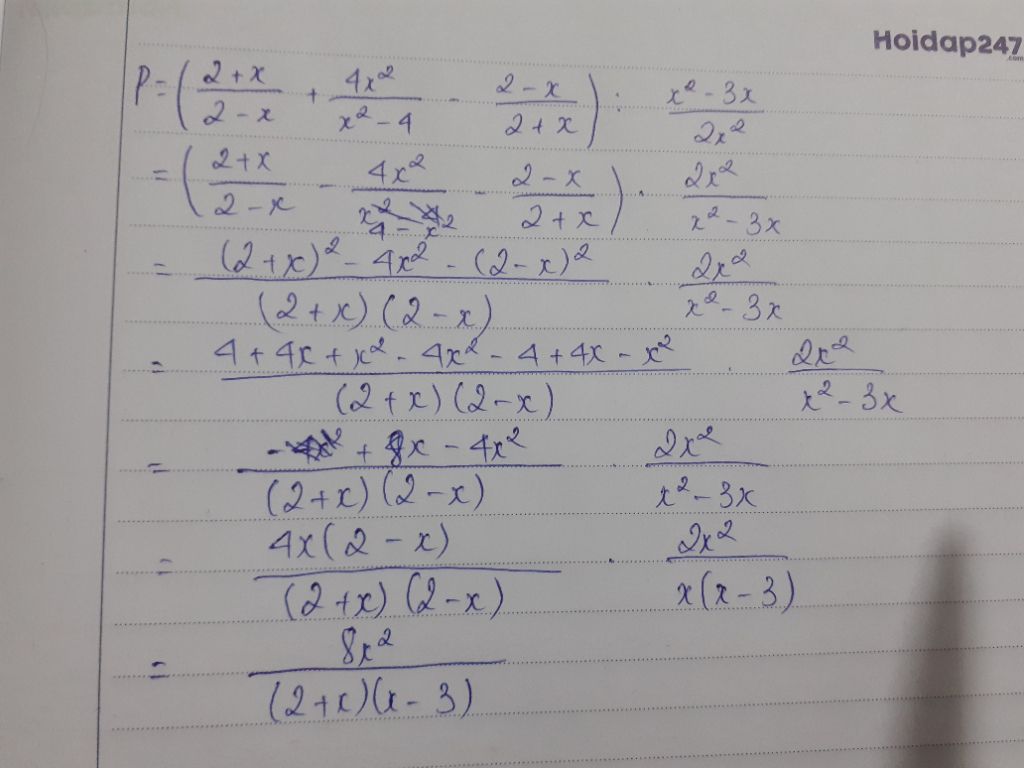 Hoidap247.com
P = ( (2+x)/(2-x) + 4x²/(x²-4) - (2-x)/(2+x) ) : (x²-3x)/(2x²)
= ( (2+x)/(2-x) - 4x²/(4-x²) - (2-x)/(2+x) ) . 2x²/(x²-3x)
= ((2+x)² - 4x² - (2-x)²)/((2+x)(2-x)) . 2x²/(x²-3x)
= (4+4x+x² - 4x² - 4+4x-x²)/((2+x)(2-x)) . 2x²/(x²-3x)
= (+8x - 4x²)/((2+x)(2-x)) . 2x²/(x²-3x)
= 4x(2-x)/((2+x)(2-x)) . 2x²/(x(x-3))
= 8x²/((2+x)(x-3))